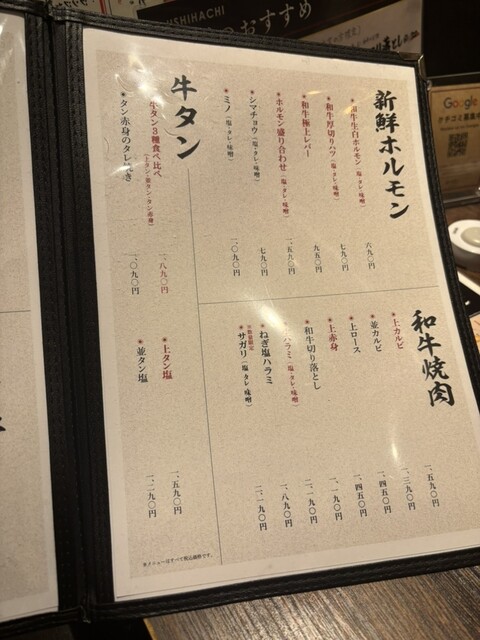 USHIHACHI
のおすすめ
Google
クチコミ募集中
新鮮ホルモン
和牛生白ホルモン（塩・タレ・味噌） 六九〇円
和牛厚切りハツ（塩・タレ・味噌） 七九〇円
和牛極上レバー 九五〇円
ホルモン盛り合わせ（塩・タレ・味噌） 一、五九〇円
シマチョウ（塩・タレ・味噌） 七九〇円
ミノ（塩・タレ・味噌） 一、〇九〇円
和牛焼肉
上カルビ 一、五九〇円
並カルビ 一、三九〇円
上ロース 一、四五〇円
上赤身 一、四五〇円
和牛切り落とし 一、一九〇円
ハラミ（塩・タレ・味噌） 二、一九〇円
ねぎ塩ハラミ 一、八九〇円
※数量限定
サガリ（塩・タレ・味噌） 二、一九〇円
牛タン
牛タン3種食べ比べ
（上タン・並タン・タン赤身） 一、八九〇円
タン赤身のタレ焼き 一、〇九〇円
上タン塩 一、五九〇円
並タン塩 一、二九〇円
※メニューはすべて税込価格です。